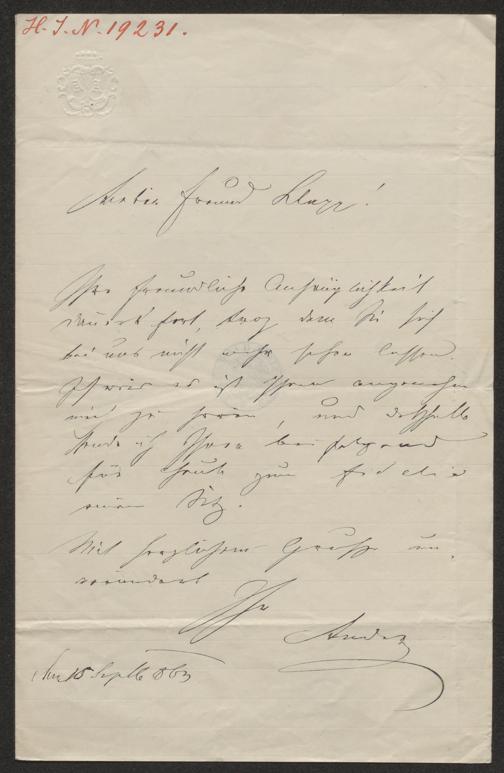 H. I. N. 19231.
Mein Freund Klapp!
Ihre freundliche Anhänglichkeit
dauert fort, troz dem Sie sich
bei uns nicht mehr sehen lassen.
Ich weis es ist Ihnen angenehm
mich zu hören, und deßhalb
sende ich Ihnen beifolgend
für heute zum Fidelio
einen Sitz.
Mit herzlichem Gruße un-
verändert
Ihr
Ander
15 Septb 863